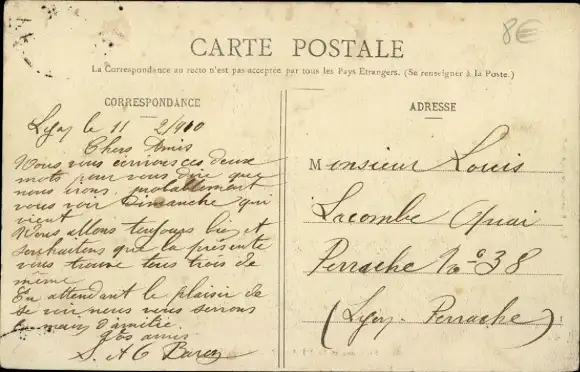 8€
CARTE POSTALE
La Correspondance au recto n'est pas acceptée par tous les Pays Etrangers. (Se renseigner à la Poste.)
CORRESPONDANCE
Lyon le 11 2/910
Chers Amis
Nous vous écrivons ces deux
mots pour vous dire que
nous irons probablement
vous voir Dimanche qui
vient
Nous allons toujours bien et
souhaitons que la présente
vous trouve tous trois de
même
En attendant le plaisir de
se voir nous vous serrons
main d'amitié.
Vos amis
S. A G
ADRESSE
Monsieur Louis
Lacombe Quai
Perrache No 38
(Lyon-Perrache)